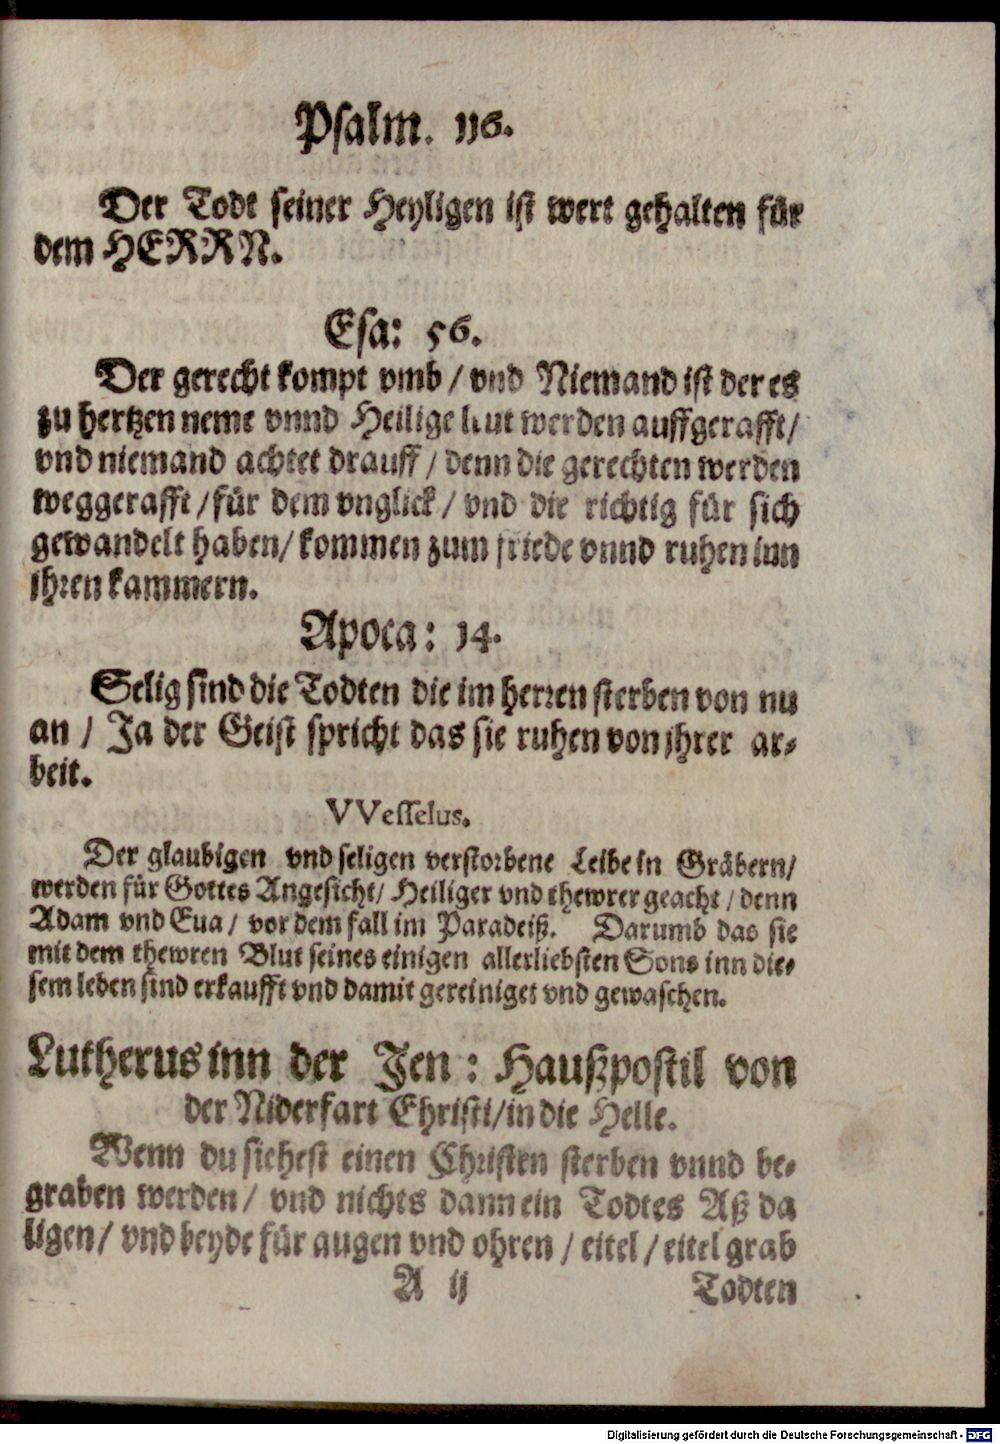 Psalm. 116.
Der Todt seiner Heyligen ist wert gehalten für
dem HERRN.
Esa: 56.
Der gerecht kompt vmb / vnd Niemand ist der es
zu hertzen neme vnnd Heilige leut werden auffgerafft/
vnd niemand achtet drauff / denn die gerechten werden
weggerafft / für dem vnglick / vnd die richtig für sich
gewandelt haben/ kommen zum friede vnnd ruhen inn
jhren kammern.
Apoca: 14.
Selig sind die Todten die im herren sterben von nu
an / Ja der Geist spricht das sie ruhen von jhrer ar-
beit.
VVesselus.
Der glaubigen vnd seligen verstorbene Leibe in Gräbern/
werden für Gottes Angesicht/ Heiliger vnd thewrer geacht / denn
Adam vnd Eua / vor dem fall im Paradeiß. Darumb das sie
mit dem thewren Blut seines einigen allerliebsten Sons inn die-
sem leben sind erkaufft vnd damit gereiniget vnd gewaschen.
Lutherus inn der Jen: Haußpostil von
der Niderfart Christi/in die Helle.
Wenn du siehest einen Christen sterben vnnd be-
graben werden/ vnd nichts dann ein Todtes Aß da
ligen/ vnd beyde für augen vnd ohren / eitel / eitel grab
A ij Todten
Digitalisierung gefördert durch die Deutsche Forschungsgemeinschaft - DFG